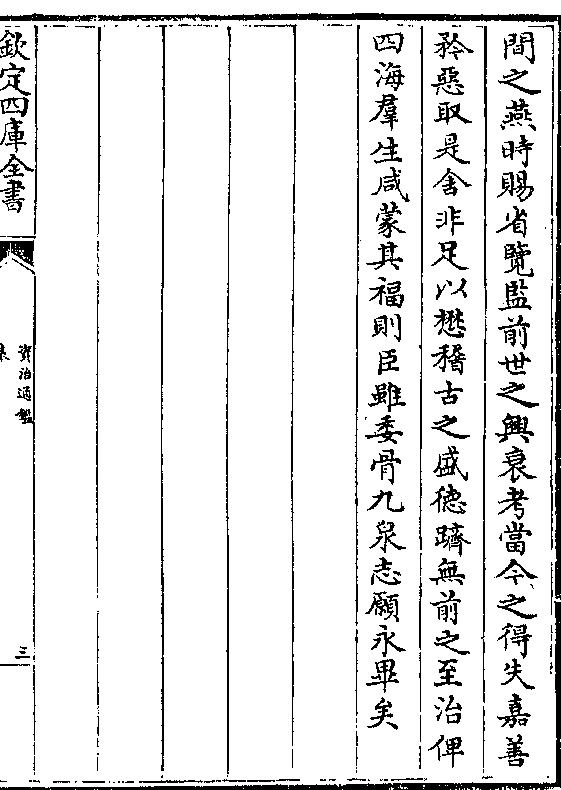 間之燕時賜省覽監前世之興衰考當今之得失嘉善
矜惡取是舍非足以懋稽古之盛德躋無前之至治俾
四海羣生咸蒙其福則臣雖委骨九泉志願永畢矣
欽定四庫全書
資治通鑑
表
三